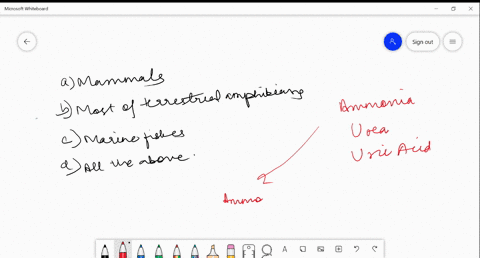 Microsoft Whiteboard
Sign out
a) Mammals
b) Most of terrestrial amphibians
c) Marine fishes
d) All the above.
Ammonia
Urea
Uric Acid
Ammo
A